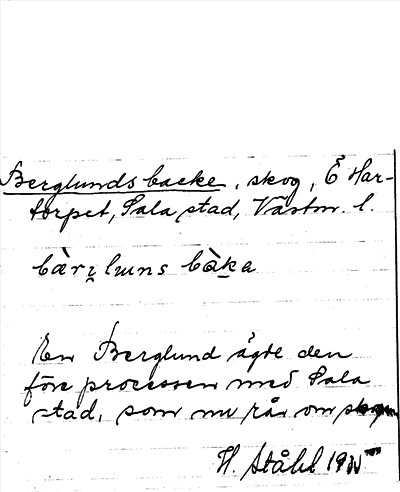 Berglunds backe, skog, Ö Har-
torpet, Sala stad, Västm. l.
bàri̯lɯns bàka
En Berglund ägde den
före processen med Sala
stad, som nu rår om skogen
H. Ståhl